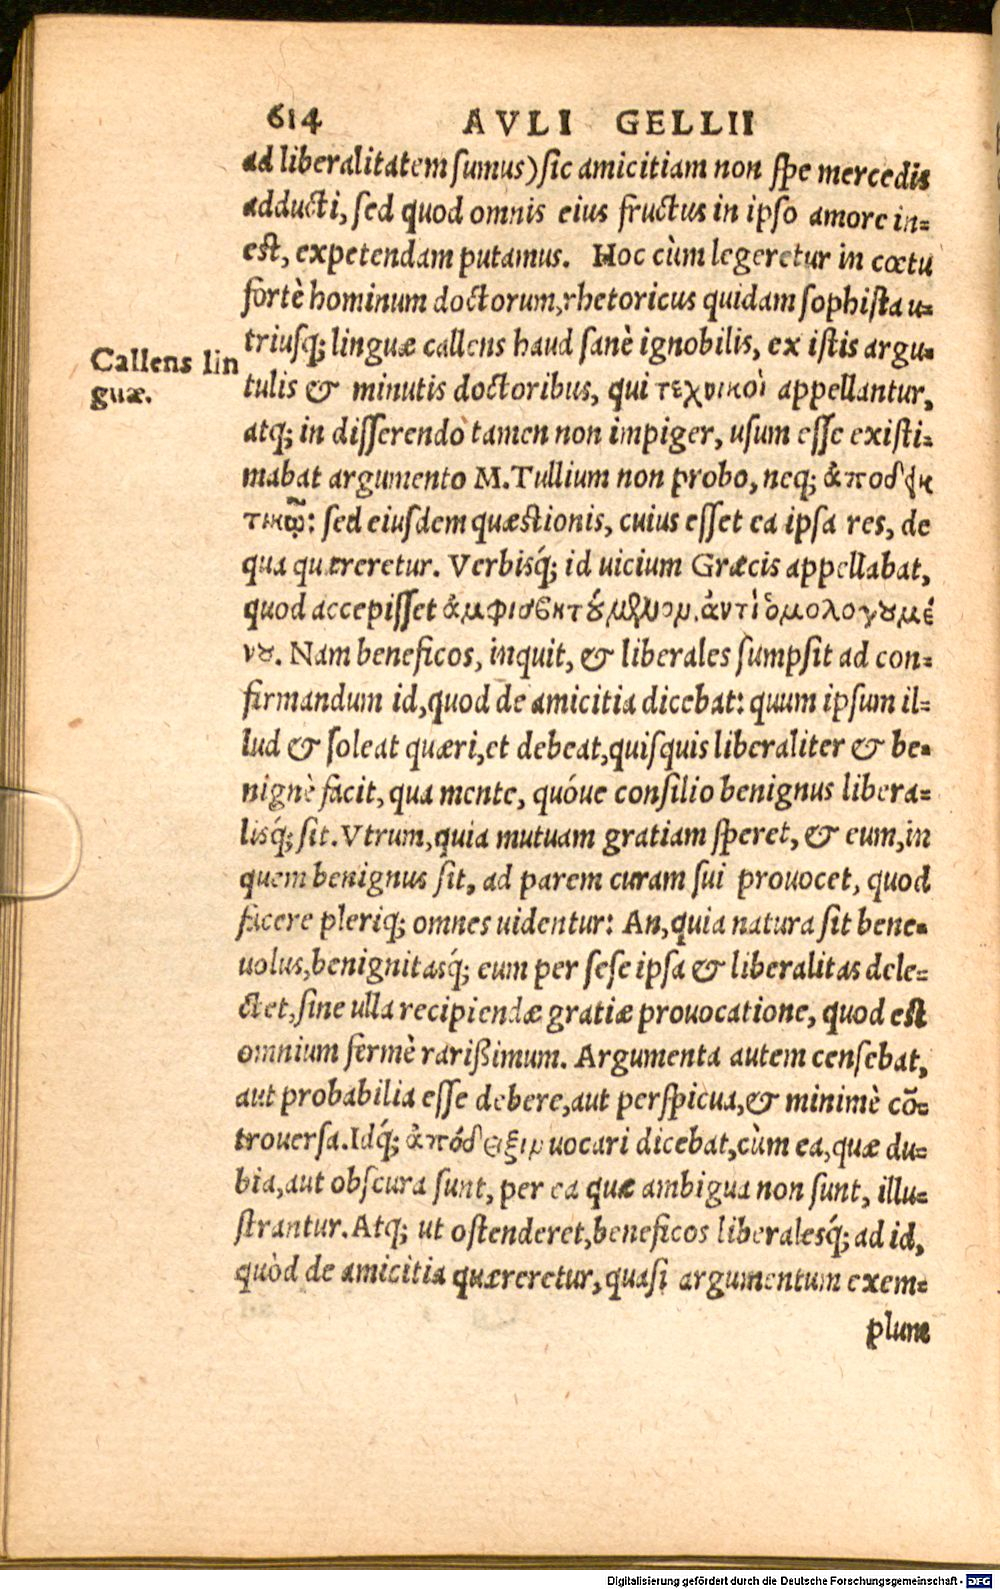 614 AVLI GELLII
ad liberalitatem ſumus) ſic amicitiam non ſpe mercedis
adducti, ſed quod omnis eius fructus in ipſo amore in=
eſt, expetendam putamus. Hoc cùm legeretur in cœtu
fortè hominum doctorum, rhetoricus quidam ſophiſta u=
triuſq́; linguæ callens haud ſanè ignobilis, ex iſtis argu=
Callens lin
guæ.
tulis & minutis doctoribus, qui τεχνικοὶ appellantur,
atq; in diſſerendo tamen non impiger, uſum eſſe exiſti=
mabat argumento M. Tullium non probo, neq; ἀποδεικ
τικῷ: ſed eiuſdem quæſtionis, cuius eſſet ea ipſa res, de
qua quæreretur. Verbisq́; id uicium Græcis appellabat,
quod accepiſſet ἀμφισβητούμενον. ἀντὶ ὁμολογουμέ
νου. Nam beneficos, inquit, & liberales ſumpſit ad con=
firmandum id, quod de amicitia dicebat: quum ipſum il=
lud & ſoleat quæri, et debeat, quiſquis liberaliter & be=
nignè facit, qua mente, quóue conſilio benignus libera=
lisq́; ſit. Vtrum, quia mutuam gratiam ſperet, & eum, in
quem benignus ſit, ad parem curam ſui prouocet, quod
facere pleriq; omnes uidentur: An, quia natura ſit bene=
uolus, benignitasq́; eum per ſeſe ipſa & liberalitas dele=
ctet, ſine ulla recipiendæ gratiæ prouocatione, quod eſt
omnium fermè rarißimum. Argumenta autem cenſebat,
aut probabilia eſſe debere, aut perſpicua, & minimè cõ=
trouerſa. Idq́; ἀπόδειξιν uocari dicebat, cùm ea, quæ du=
bia, aut obſcura ſunt, per ea quæ ambigua non ſunt, illu=
ſtrantur. Atq; ut oſtenderet, beneficos liberalesq́; ad id,
quòd de amicitia quæreretur, quaſi argumentum exem=
plum
Digitalisierung gefördert durch die Deutsche Forschungsgemeinschaft - DFG